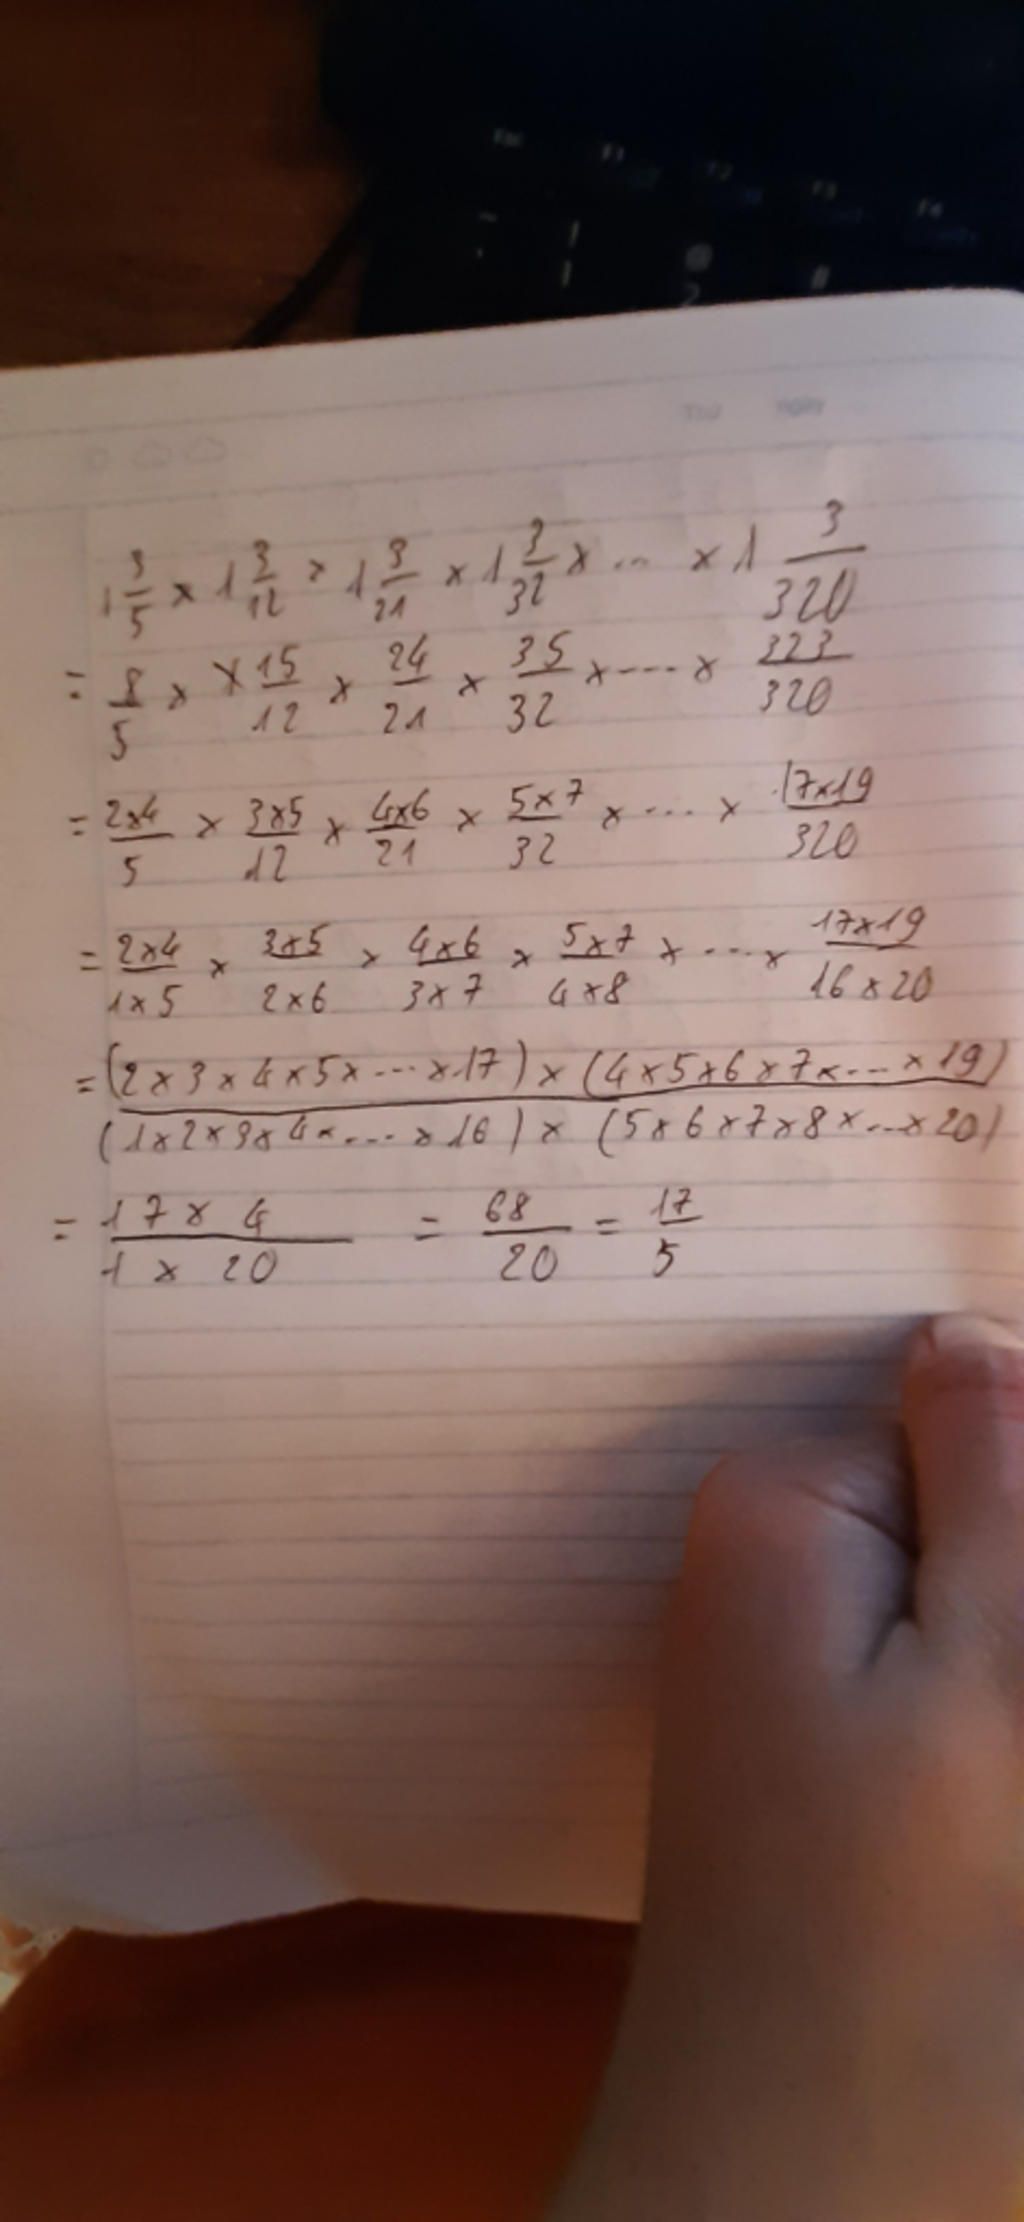 Esc F1 F2 F3 F4
~ ! @ #
1 2
Thứ Ngày
1 3/5 × 1 3/12 × 1 3/21 × 1 3/32 × ... × 1 3/320
= 8/5 × × 15/12 × 24/21 × 35/32 × .... × 323/320
= 2×4/5 × 3×5/12 × 4×6/21 × 5×7/32 × .... × 17×19/320
= 2×4/1×5 × 3×5/2×6 × 4×6/3×7 × 5×7/4×8 × .... × 17×19/16×20
= (2×3×4×5×....×17)×(4×5×6×7×....×19)/(1×2×3×4×....×16)×(5×6×7×8×...×20)
= 17×4/1×20 = 68/20 = 17/5